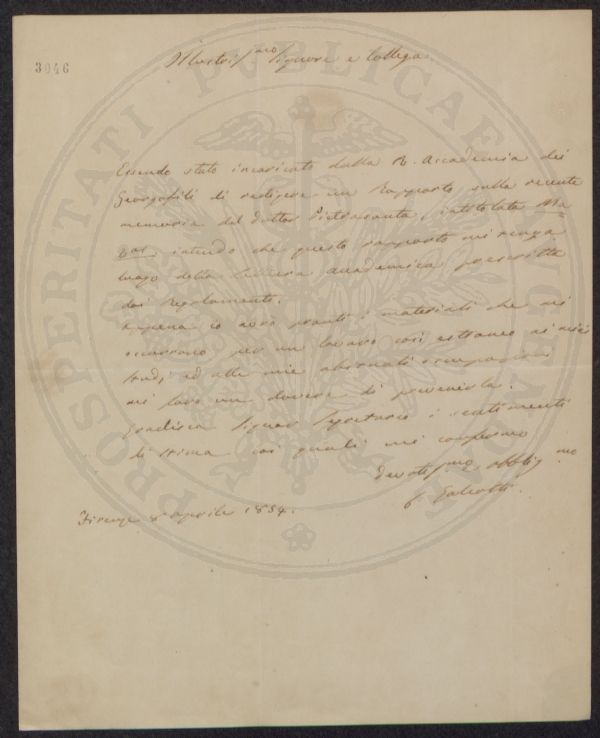 3046
Illustris.mo Signore e Collega
Essendo stato incaricato dalla R. Accademia dei
Georgofili di redigere un Rapporto sulla recente
memoria del Dottor Pietrasanta, intitolata
intendo che questo rapporto mi tenga
luogo della lettura accademica prescritta
dai Regolamenti.
Appena io avrò pronti i materiali che mi
occorrono per un lavoro così estraneo ai miei
studj ed alle mie abituali occupazioni
mi farò un dovere di prevenirla.
Gradisca Signor Segretario i sentimenti
di stima coi quali mi confermo
Devotis.mo Obblig.mo
Galeotti
Firenze 8 Aprile 1854.
PROSPERITATI PUBLICAE AUGENDAE